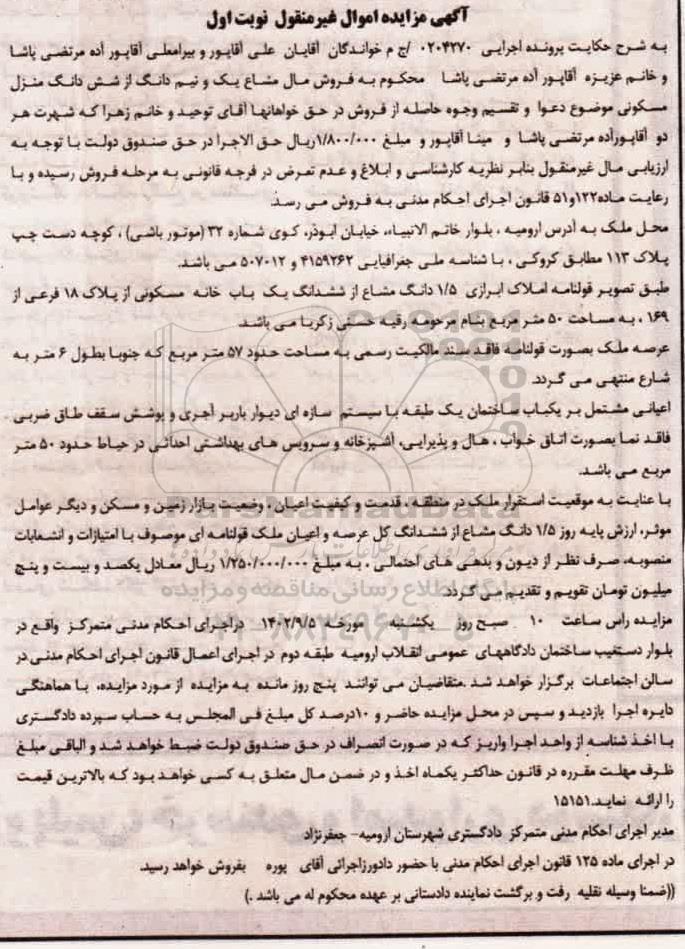 آگهی مزایده اموال غیرمنقول نوبت اول
به شرح حکایت پرونده اجرایی ۰۲۰۴۲۷۰ /ج م خواندگان آقایان علی آقاپور و بیرامعلی آقاپور آده مرتضی پاشا
و خانم عزیزه آقاپور آده مرتضی پاشا محکوم به فروش مال مشاع یک و نیم دانگ از شش دانگ منزل
مسکونی موضوع دعوا و تقسیم وجوه حاصله از فروش در حق خواهانها آقای توحید و خانم زهرا که شهرت هر
دو آقاپورآده مرتضی پاشا و مینا آقاپور و مبلغ ۱/۸۰۰/۰۰۰ریال حق الاجرا در حق صندوق دولت با توجه به
ارزیابی مال غیرمنقول بنابر نظریه کارشناسی و ابلاغ و عدم تعرض در فرجه قانونی به مرحله فروش رسیده و با
رعایت ماده۱۲۲و۵۱ قانون اجرای احکام مدنی به فروش می رسد.
محل ملک به آدرس ارومیه ، بلوار خاتم الانبیاء، خیابان ابوذر، کوی شماره ۳۲ (موتور باشی) ، کوچه دست چپ
پلاک ۱۱۳ مطابق کروکی ، با شناسه ملی جغرافیایی ۴۱۵۹۲۶۲ و ۵۰۷۰۱۲ می باشد.
طبق تصویر قولنامه املاک ابرازی ۱/۵ دانگ مشاع از ششدانگ یک باب خانه مسکونی از پلاک ۱۸ فرعی از
۱۶۹ ، به مساحت ۵۰ متر مربع بنام مرحومه رقیه حسنی زکریا می باشد.
عرصه ملک بصورت قولنامه فاقد سند مالکیت رسمی به مساحت حدود ۵۷ متر مربع که جنوبا بطول ۶ متر به
شارع منتهی می گردد.
اعیانی مشتمل بر یکباب ساختمان یک طبقه با سیستم سازه ای دیوار باربر آجری و پوشش سقف طاق ضربی
فاقد نما بصورت اتاق خواب ، هال و پذیرایی، آشپزخانه و سرویس های بهداشتی احداثی در حیاط حدود ۵۰ متر
مربع می باشد.
با عنایت به موقعیت استقرار ملک در منطقه، قدمت و کیفیت اعیان ، وضعیت بازار زمین و مسکن و دیگر عوامل
موثر، ارزش پایه روز ۱/۵ دانگ مشاع از ششدانگ کل عرصه و اعیان ملک قولنامه ای موصوف با امتیازات و انشعابات
منصوبه، صرف نظر از دیون و بدهی های احتمالی ، به مبلغ ۱/۲۵۰/۰۰۰/۰۰۰ ریال معادل یکصد و بیست و پنج
میلیون تومان تقویم و تقدیم می گردد.
مزایده راس ساعت ۱۰ صبح روز یکشنبه مورخه ۱۴۰۲/۹/۵ دراجرای احکام مدنی متمرکز واقع در
بلوار دستغیب ساختمان دادگاههای عمومی انقلاب ارومیه طبقه دوم در اجرای اعمال قانون اجرای احکام مدنی.در
سالن اجتماعات برگزار خواهد شد .متقاضیان می توانند پنج روز مانده به مزایده از مورد مزایده، با هماهنگی
دایره اجرا بازدید و سپس در محل مزایده حاضر و ۱۰درصد کل مبلغ فی المجلس به حساب سپرده دادگستری
با اخذ شناسه از واحد اجرا واریز که در صورت انصراف در حق صندوق دولت ضبط خواهد شد و الباقی مبلغ
ظرف مهلت مقرره در قانون حداکثر یکماه اخذ و در ضمن مال متعلق به کسی خواهد بود که بالاترین قیمت
را ارائه نماید.۱۵۱۵۱
مدیر اجرای احکام مدنی متمرکز دادگستری شهرستان ارومیه- جعفرنژاد
در اجرای ماده ۱۲۵ قانون اجرای احکام مدنی با حضور دادورزاجرائی آقای پوره بفروش خواهد رسید.
((ضمنا وسیله نقلیه رفت و برگشت نماینده دادستانی بر عهده محکوم له می باشد .)